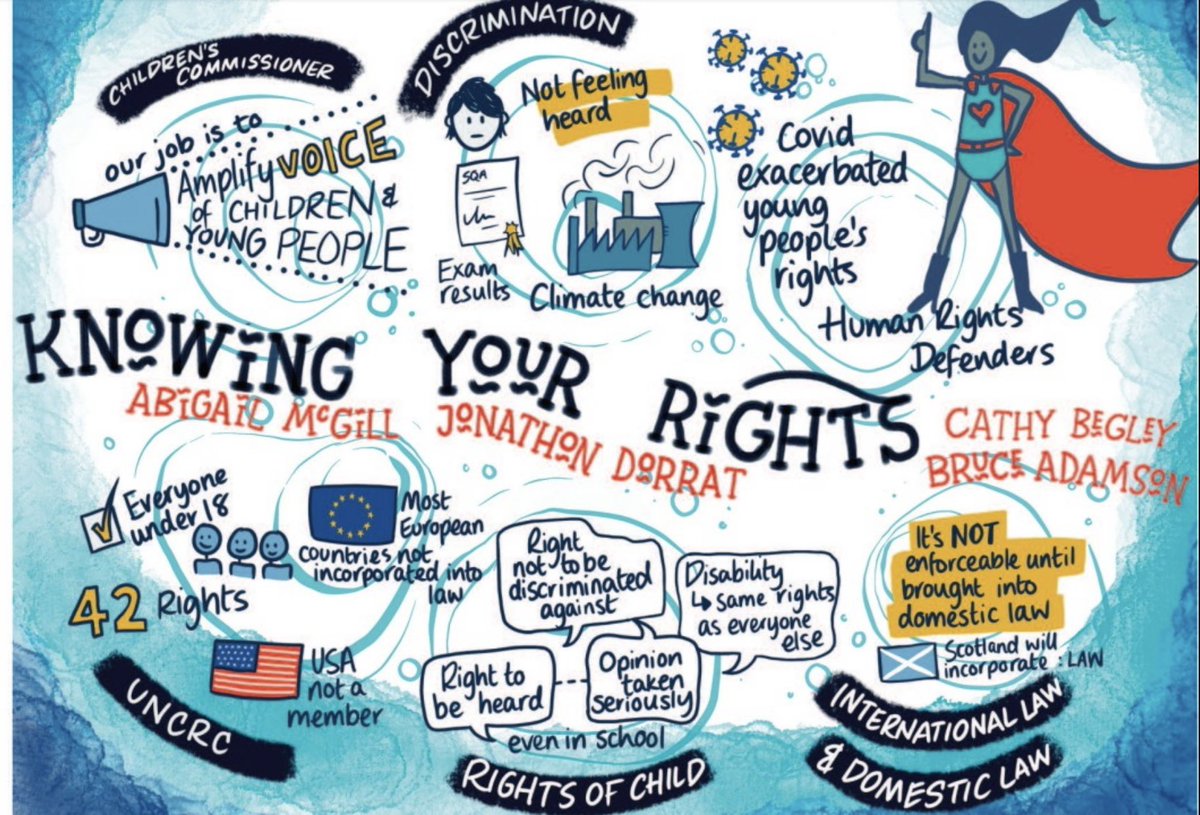 CHILDREN'S
COMMISSIONER
our job is to
Amplify VOICE
of CHILDREN &
YOUNG PEOPLE
DISCRIMINATION
Not feeling
heard
SQA
Exam
results
Climate change
Covid
exacerbated
young
people's
rights
Human Rights
Defenders
KNOWING YOUR RIGHTS
ABIGAIL McGILL
JONATHON DORRAT
CATHY BEGLEY
BRUCE ADAMSON
Everyone
under 18
42 Rights
Most
European
countries not
incorporated into
law
USA
not a
member
UNCRC
Right
not to be
discriminated
against
Disability
↳ same rights
as everyone
else
Right to
be heard
Opinion
taken
seriously
even in school
RIGHTS OF CHILD
It's NOT
enforceable until
brought into
domestic law
Scotland will
incorporate : LAW
INTERNATIONAL LAW
& DOMESTIC LAW